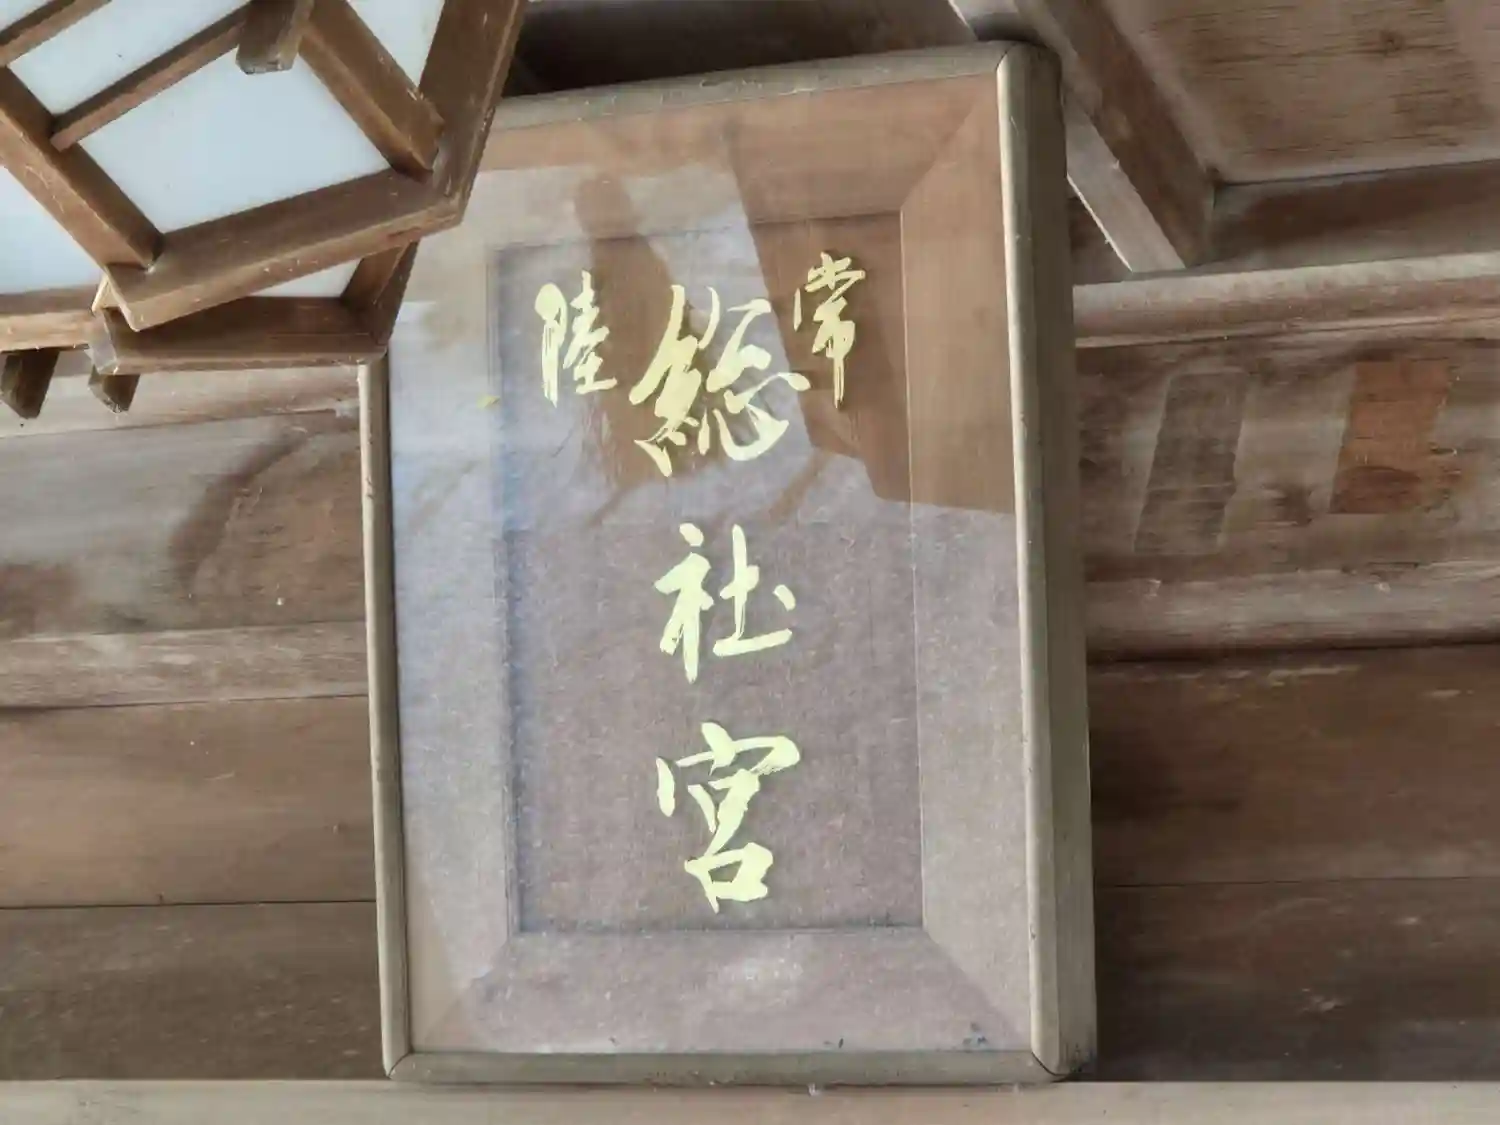 常陸
総社宮